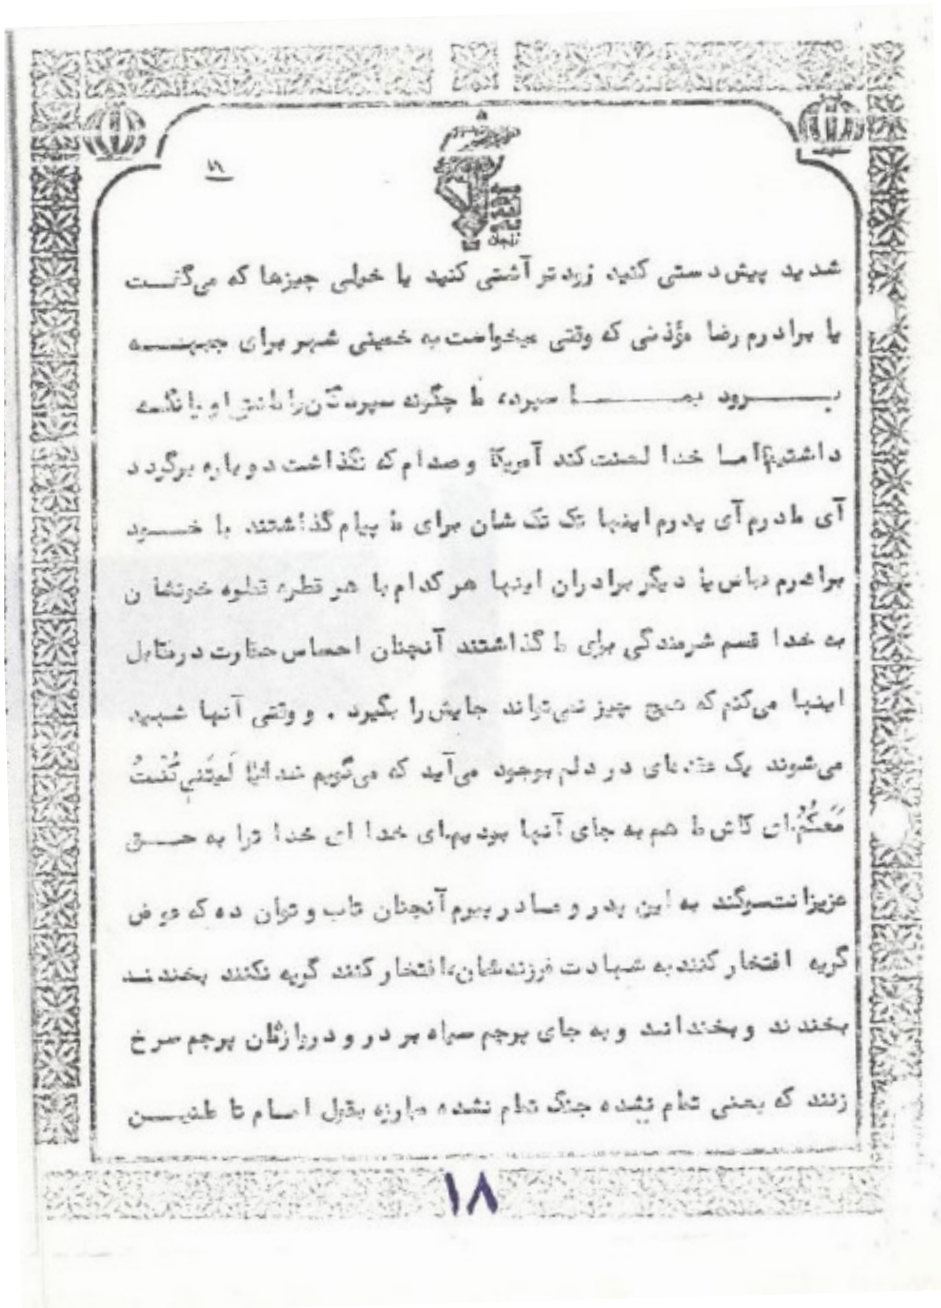 ۱۹
زنجان
شدید پیش دستی کنید زودتر آشتی کنید یا خیلی چیزها که می‌گفت
یا برادرم رضا مؤذنی که وقتی میخواست به خمینی شهر برای جبهه
برود بما سپرده ما چگونه سپردگان را
داشتیم اما خدا لعنت کند آمریکا و صدام که نگذاشت دوباره برگردد
آی مادرم آی پدرم اینها تک تک شان برای ما پیام گذاشتند با خود
برادرم عباس یا دیگر برادران اینها هر کدام با هر قطره قطره خونشان
به خدا قسم شرمندگی برای ما گذاشتند آنچنان احساس حقارت در مقابل
اینها می‌کنم که هیچ چیز نمی‌تواند جایش را بگیرد . و وقتی آنها شهید
می‌شوند یک عقده‌ای در دلم بوجود می‌آید که می‌گویم خدایا لَیتَنی کُنتُ
مَعَکُمْ ای کاش ما هم به جای آنها بودیم ای خدا ای خدا ترا به حق
عزیزانت سوگند به این پدر و مادر پیرم آنچنان تاب و توان ده که عوض
گریه افتخار کنند به شهادت فرزندشان افتخار کنند گریه نکنند بخندند
بخندند و بخندانند و به جای پرچم سیاه بر در و دروازه‌تان پرچم سرخ
زنند که یعنی تمام نشده جنگ تمام نشده مبارزه بقول امام تا طنین
۱۸